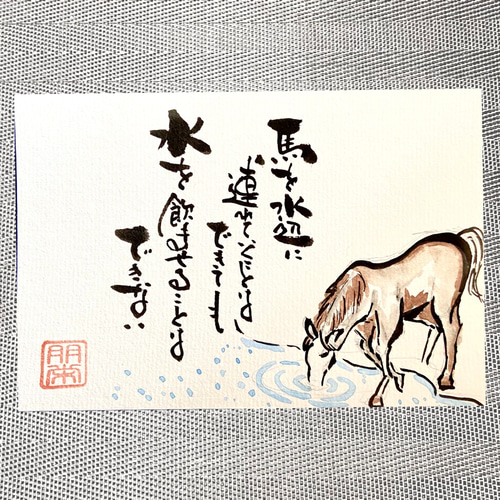 馬を水辺に
連れていくことは
できても
水を飲ませることは
できない